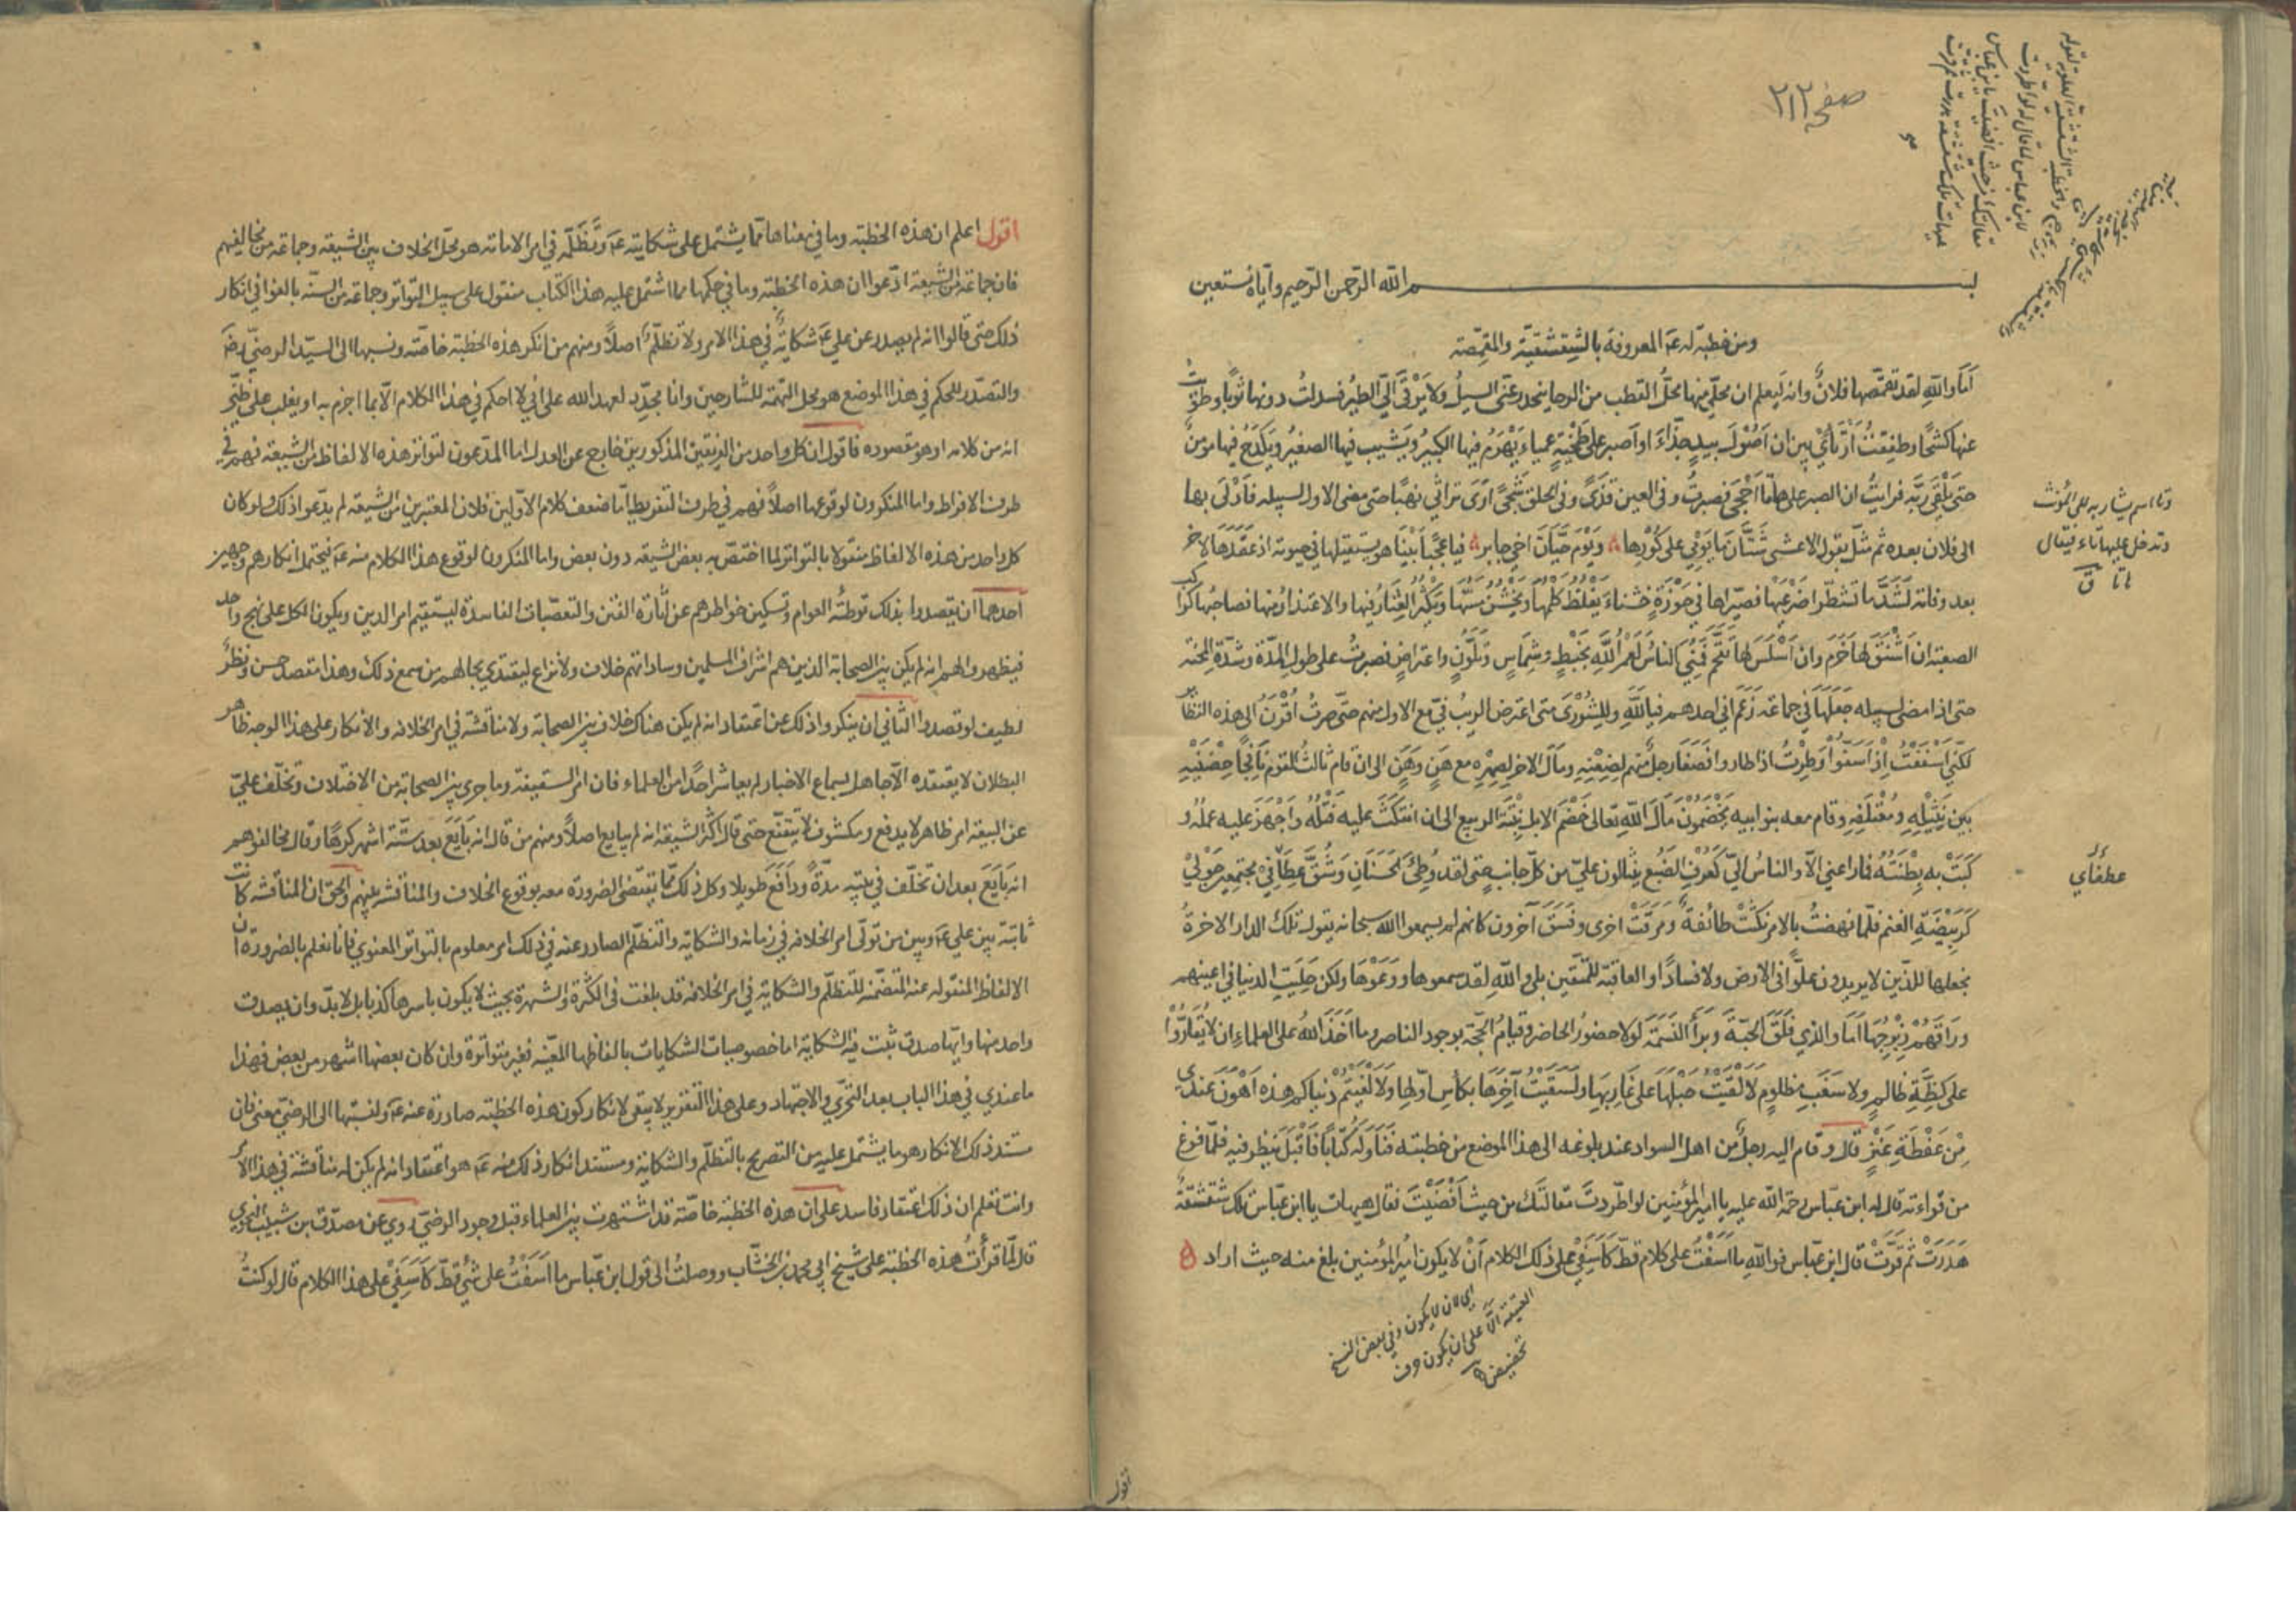 صفحه ٢١٢
بسم الله الرّحمن الرّحيم وايّاه نستعين
ومن خطبة له عم المعروفة بالشِقشقيّة والمقمّصة
اَمَا واللهِ لقد تقمّصها فلانٌ وانه ليَعلم ان محلّي منها محلُّ القطب من الرحا ينحدر عنّى السيلُ ولا يَرْقَى اِلَيّ الطيرُ فسدلتُ دونها ثوبًا وطويتُ
عنها كشحًا وطفِقتُ اَرْتَأي بين ان اَصُوْلَ بيدٍ جذّاءَ او اَصبر على طَخْيَةٍ عمياءَ يَهْرَمُ فيها الكبيرُ ويَشيب فيها الصغيرُ ويَكدَحُ فيها مؤمنٌ
حتى يَلْقَى ربّه فرايتُ ان الصبر على هاتَا اَحْجَى فصبرتُ وفى العين قذًى وفى الحلق شَجًى اَرَى تراثي نهبًا حتى مضى الاول لسبيله فاَدْلَى بها
الى فلان بعده ثم تمثّل بقول الاعشى شَتَّانَ ما يَوْمِي على كُوْرِها ۞ ويَوْمُ حَيَّانَ اَخِي جابرِ ۞ فيا عجَبًا بَيْنَا هو يستقيلها في حيوته اذ عَقَدَهَا لآخر
بعد وفاته لَشَدَّ ما تشطّرا ضَرْعَيْها فصيّرها في حَوْزَةٍ خشناءَ يَغْلُظُ كَلْمُها ويَخْشُنُ مَسُّها ويَكْثُرُ العِثَارُ فيها والاعتذارُ منها فصاحبُها كراكب
الصعبة ان اَشْنَقَ لها خَرَمَ وان اَسْلَسَ لها تَقَحَّمَ فمُنِيَ الناسُ لَعَمْرُ اللهِ بخَبْطٍ وشِمَاسٍ وتَلَوُّنٍ واعتراضٍ فصبرتُ على طول المدّة وشدّة المحنة
حتى اذا مضى لسبيله جَعَلَهَا في جماعة زَعَمَ انى احدهم فيا لَلّهِ ولِلشُورَى متى اعترض الريبُ فيّ مع الاول منهم حتى صرتُ اُقْرَنُ الى هذه النظائر
لكنّي اَسْفَفْتُ اِذْ اَسَفّوْا وطِرْتُ اذ طاروا فصَغَا رجلٌ منهم لضِغْنِهِ ومَالَ الاخر لصِهْرِه مع هَنٍ وهَنٍ الى ان قام ثالثُ القوم نافِجًا حِضْنَيْهِ
بين نَثِيْلِهِ ومُعْتَلَفِهِ وقام معه بنو ابيه يَخْضَمُوْنَ مَالَ اللهِ تعالى خَضْمَ الابل نِبْتَةَ الربيع الى ان انتكَثَ عليه فَتْلُهُ واَجْهَزَ عليه عملُهُ و
كَبَتْ به بِطْنَتُهُ فما راعني الّا والناسُ اليّ كَعُرْفِ الضَبُع ينثالون عليّ من كلّ جانب حتى لقد وُطِئَ الحَسَنَانِ وشُقَّ عِطَافِيْ مجتمعين حَوْلِيْ
كَرَبِيْضَةِ الغنم فلمّا نهضتُ بالامر نكثَتْ طائفةٌ ومَرَقَتْ اخرى وفَسَقَ آخرون كانهم لم يسمعوا الله سبحانه يقول تلك الدار الاخرةُ
نجعلها للّذين لا يريدون علوًّا فى الارض ولا فسادًا والعاقبة للمتقين بلى واللهِ لقد سمعوها ووَعَوْهَا ولكن حَلِيَتِ الدنيا في اعينهم
ورَاقَهُمْ زِبْرِجُهَا اَمَا والذي فَلَقَ الحَبّةَ وبَرَأَ النَسَمَةَ لولا حضورُ الحاضر وقيامُ الحجّة بوجود الناصر وما اَخَذَ اللهُ على العلماء ان لا يُقَارُّوْا
على كِظَّةِ ظالمٍ ولا سَغَبِ مظلومٍ لَالْقَيْتُ حَبْلَهَا على غَارِبِهَا ولَسَقَيْتُ آخِرَهَا بكأس اوّلها ولَالْفَيْتم دنياكم هذه اَهْوَنَ عندي
مِنْ عَفْطَةِ عَنْزٍ قال وقام اليه رجلٌ من اهل السواد عند بلوغه الى هذا الموضع من خطبته فَنَاوَلَهُ كتابًا فَاَقْبَلَ ينظر فيه فلمّا فرغ
من قراءته قال له ابن عبّاس رحمة الله عليه يا امير المؤمنين لو اطّردتْ مقالتك من حيث اَفْضَيْتَ فقال هيهات يا ابن عبّاس تلك شقشقةٌ
هَدَرَتْ ثم قَرَّتْ قال ابن عبّاس فوالله ما اَسِفْتُ على كلام قطّ كأَسَفِيْ على ذلك الكلام اَنْ لا يكون امير المؤمنين بلغ منه حيث اراد
وتا اسم يشار به للمؤنث
وتدخل عليها هاء فيقال
هاتا ق
عطفاي
اي لان لا يكون وفي بعض النسخ
اقول
اقول اعلم ان هذه الخطبة وما في معناها ممّا يشتمل على شكايته عم وتَظَلُّمِه في امر الامامة هو محلّ الخلاف بين الشيعة وجماعة من مخالفيهم
فان جماعة من الشيعة ادّعوا ان هذه الخطبة وما في حكمها مما اشتمل عليه هذا الكتاب منقول على سبيل التواتر وجماعة من السنّة بالغوا في انكار
ذلك حتى قالوا انه لم يصدر عن علي عم شكايةٌ في هذا الامر ولا تظلّمٌ اصلًا ومنهم من انكر هذه الخطبة خاصّة ونسبها الى السيّد الرضيّ رضه
والتصدّر للحكم في هذا الموضع هو محل التهمة للشارحين وانا مجدّد لعهد الله على اني لا احكم في هذا الكلام الّا بما اجزم به او يغلب على ظنّي
انه من كلامه او هو مقصوده فاقول ان كل واحد من الفريقين المذكورين خارج عن العدل اما المدّعون لتواتر هذه الالفاظ من الشيعة فهم في
طرف الافراط واما المنكرون لوقوعها اصلًا فهم في طرف التفريط امّا ضعف كلام الاوّلين فلان المعتبرين من الشيعة لم يدّعوا ذلك ولو كان
كل واحد من هذه الالفاظ منقولا بالتواتر لما اختصّ به بعض الشيعة دون بعض واما المنكرون لوقوع هذا الكلام منه عم فيحتمل انكارهم وجهين
احدهما ان يقصدوا بذلك توطئة العوام وتسكين خواطرهم عن اثارة الفتن والتعصّبات الفاسدة ليستقيم امر الدين ويكون الكل على نهج واحد
فيظهروا لهم انه لم يكن بين الصحابة الذين هم اشراف المسلمين وساداتهم خلاف ولا نزاع ليقتدي بحالهم من سمع ذلك وهذا مقصد حسن ونظر
لطيف لو قصدوا الثاني ان ينكروا ذلك عن اعتقاد انه لم يكن هناك خلاف بين الصحابة ولا مناقشة في امر الخلافة والانكار على هذا الوجه ظاهر
البطلان لا يعتقده الّا جاهل بسماع الاخبار لم يعاشر احدًا من العلماء فان امر السقيفة وما جرى بين الصحابة من الاختلاف وتخلّف عليّ
عن البيعة امر ظاهر لا يدفع ومكشوف لا يتقنّع حتى قال اكثر الشيعة انه لم يبايع اصلًا ومنهم من قال انه بَايَعَ بعد ستّة اشهر كرهًا وقال مخالفوهم
انه بَايَعَ بعد ان تخلّف في بيته مدّةً ودَافَعَ طويلا وكل ذلك ممّا يقتضى الضرورة معه بوقوع الخلاف والمناقشة بينهم والحق ان المناقشة كانت
ثابتة بين علي عم وبين من تولّى امر الخلافة في زمانه والشكاية والتظلّم الصادر عنه في ذلك امر معلوم بالتواتر المعنوي فانا نعلم بالضرورة ان
الالفاظ المنقولة عنه المتضمّنة للتظلّم والشكاية في امر الخلافة قد بلغت في الكثرة والشهرة بحيث لا يكون باسرها كذبا بل لا بدّ وان يصدق
واحد منها وايّها صدق ثبت فيه الشكاية اما خصوصيات الشكايات بالفاظها المعيّنة فغير متواترة وان كان بعضها اشهر من بعض فهذا
ما عندي في هذا الباب بعد التحرّي والاجتهاد وعلى هذا التقرير لا يبقى لانكار كون هذه الخطبة صادرة عنه عم ونسبتها الى الرضيّ معنى فان
مستند ذلك الانكار هو ما يشتمل عليه من التصريح بالتظلّم والشكاية ومستند انكار ذلك منه عم هو اعتقاد انه لم يكن له مناقشة في هذا الامر
وانت تعلم ان ذلك اعتقاد فاسد على ان هذه الخطبة خاصّة قد اشتهرت بين العلماء قبل وجود الرضيّ روي عن مصدّق بن شبيب النحوي
قال لمّا قرأتُ هذه الخطبة على شيخ ابي محمد بن الخشّاب ووصلتُ الى قول ابن عبّاس ما اَسِفْتُ على شئ قطّ كأَسَفِي على هذا الكلام قال لو كنتُ